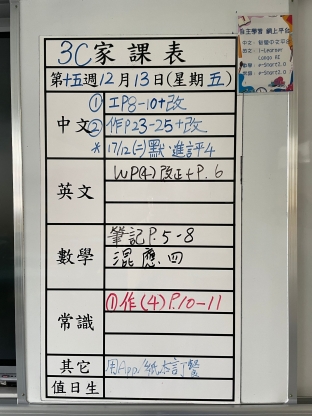 3C家課表
第十五週12月13日(星期五)
中文
① 工P8-10+改
② 作P23-25+改
* 17/12(二)默.進評4
英文
WP(4)改正+P.6
數學
筆記P.5-8
混應.四
常識
①作(4)P.10-11
其它
用App/紙本訂餐
值日生
自主學習 網上平台
i-Learner
e-Smart2.0
e-Smart2.0